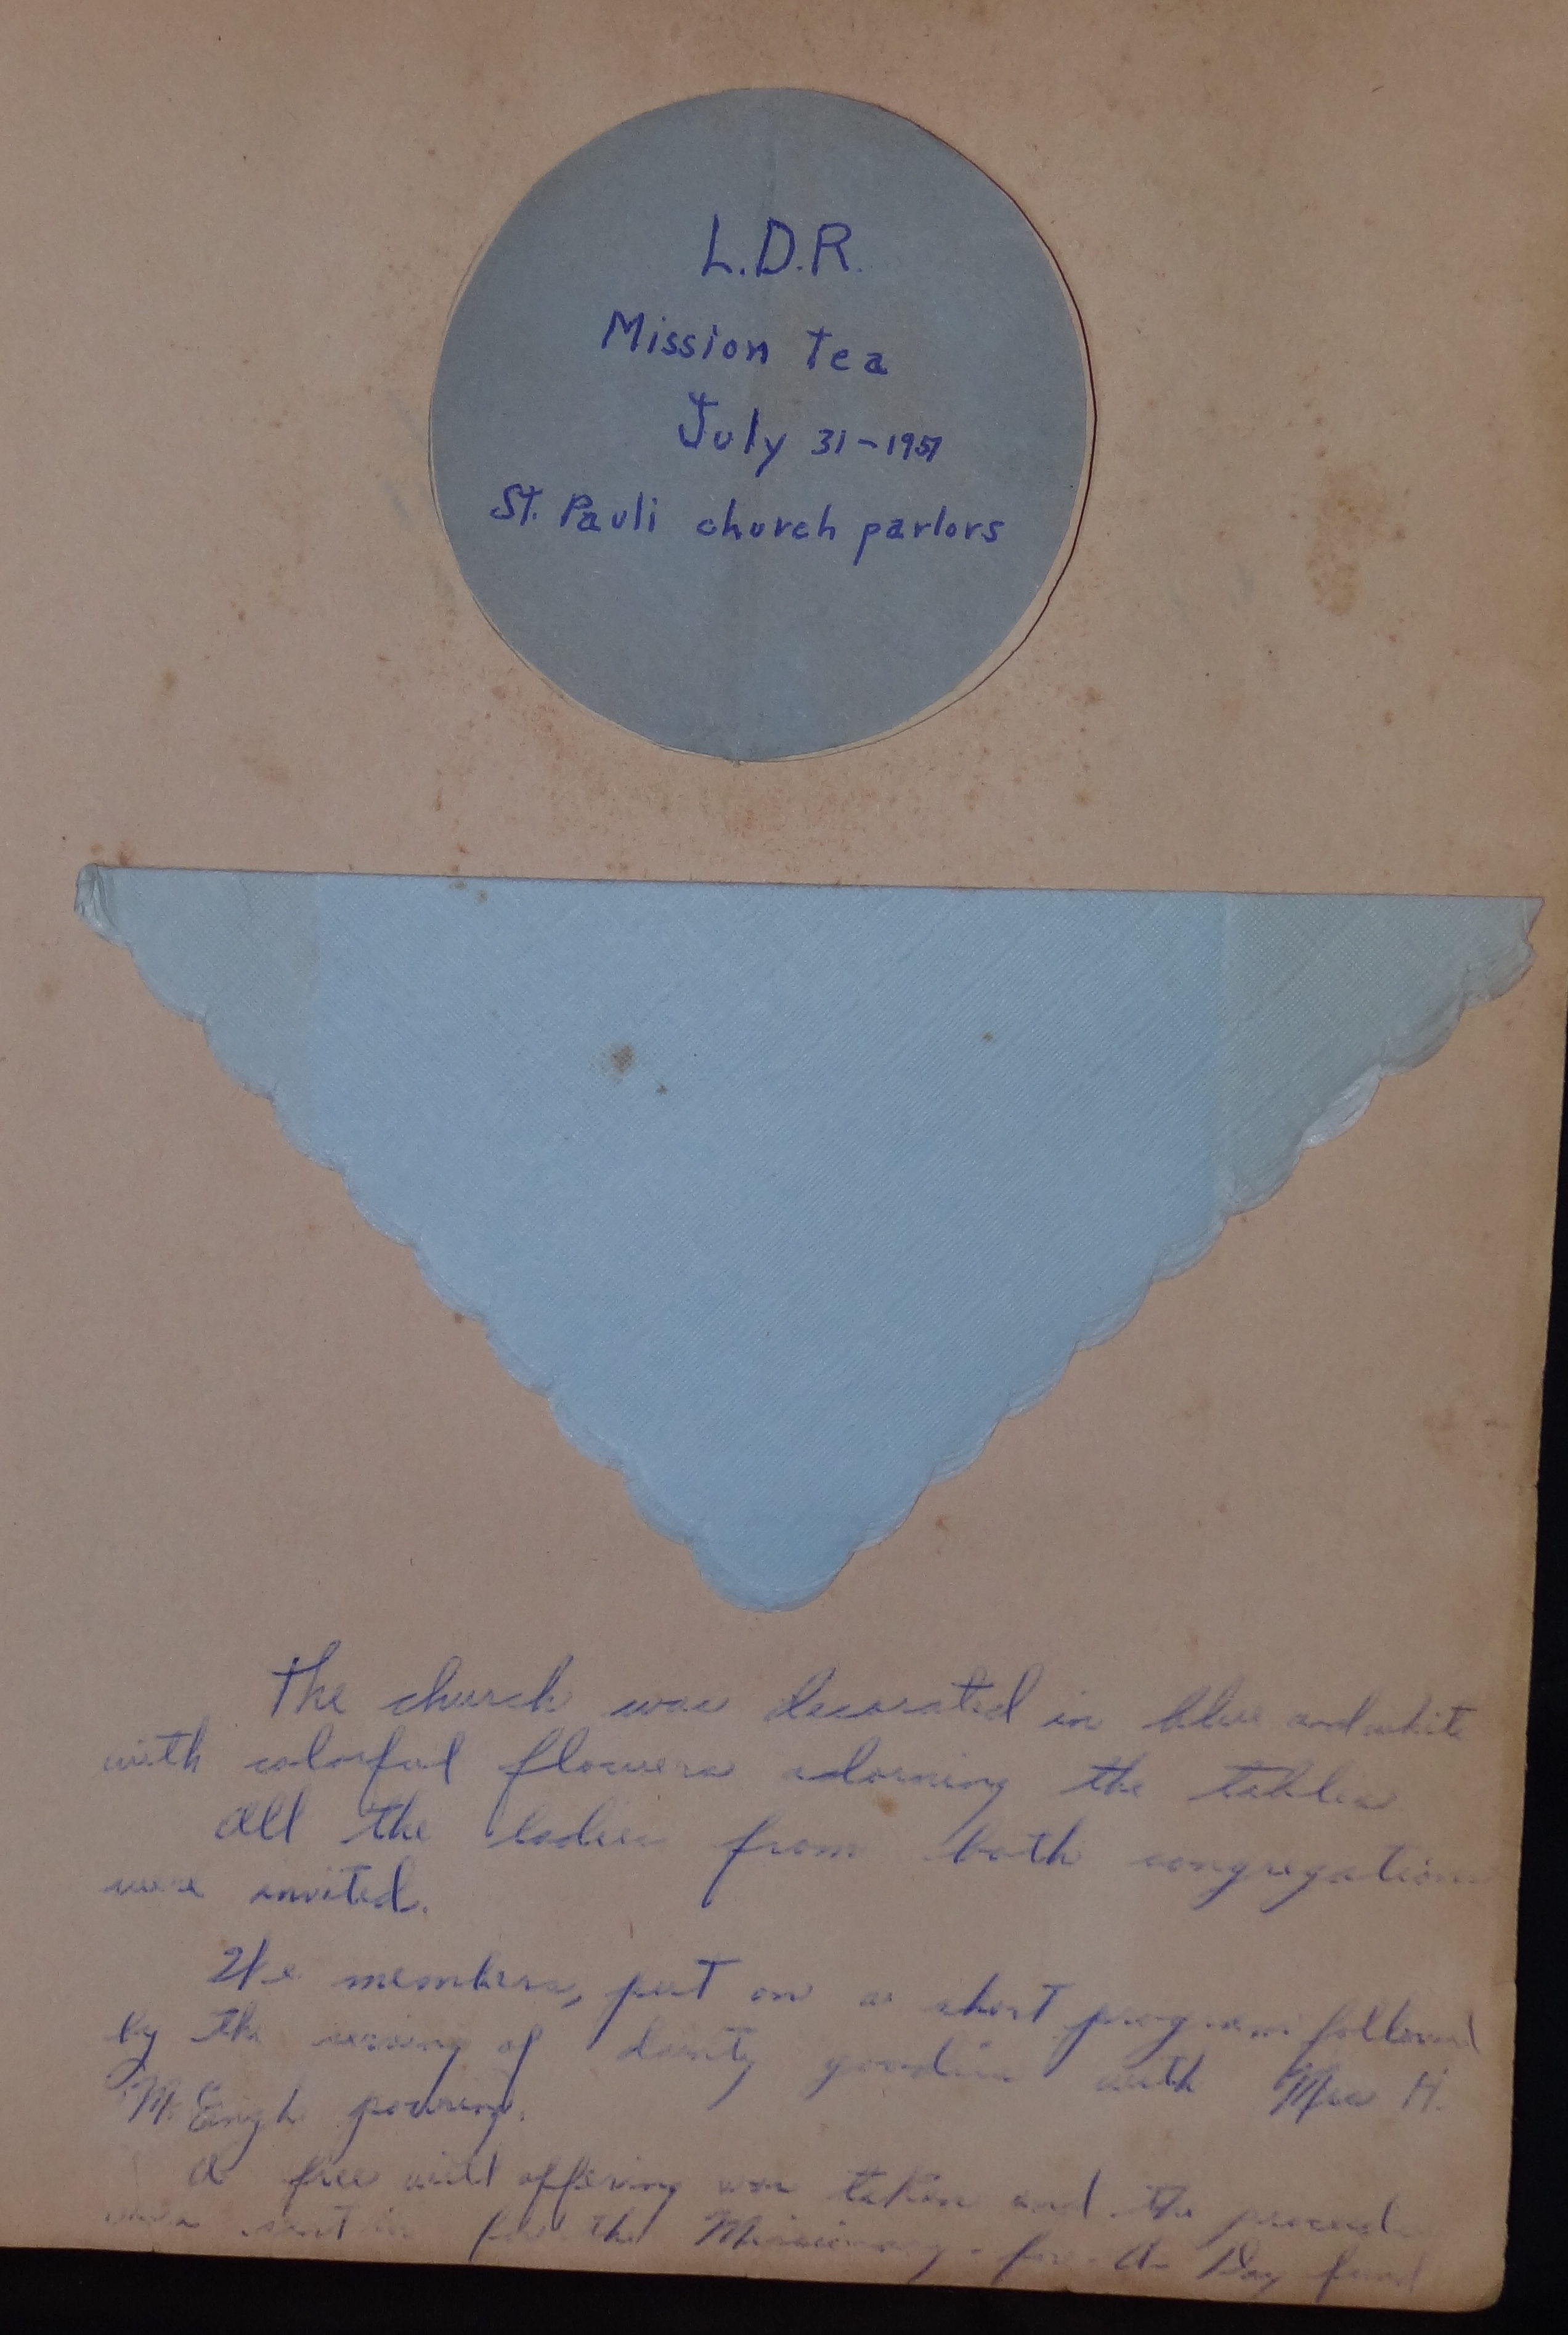 L.D.R.
Mission Tea
July 31-1951
St. Pauli church parlors
The church was decorated in blue and white
with colorful flowers adorning the tables
All the ladies from both congregations
were invited.
We members, put on a short program followed
by the serving of dainty goodies with Mrs H.
McEingh pouring.
A free will offering was taken and the proceeds
were sent in for the Missionary-for-A-Day fund